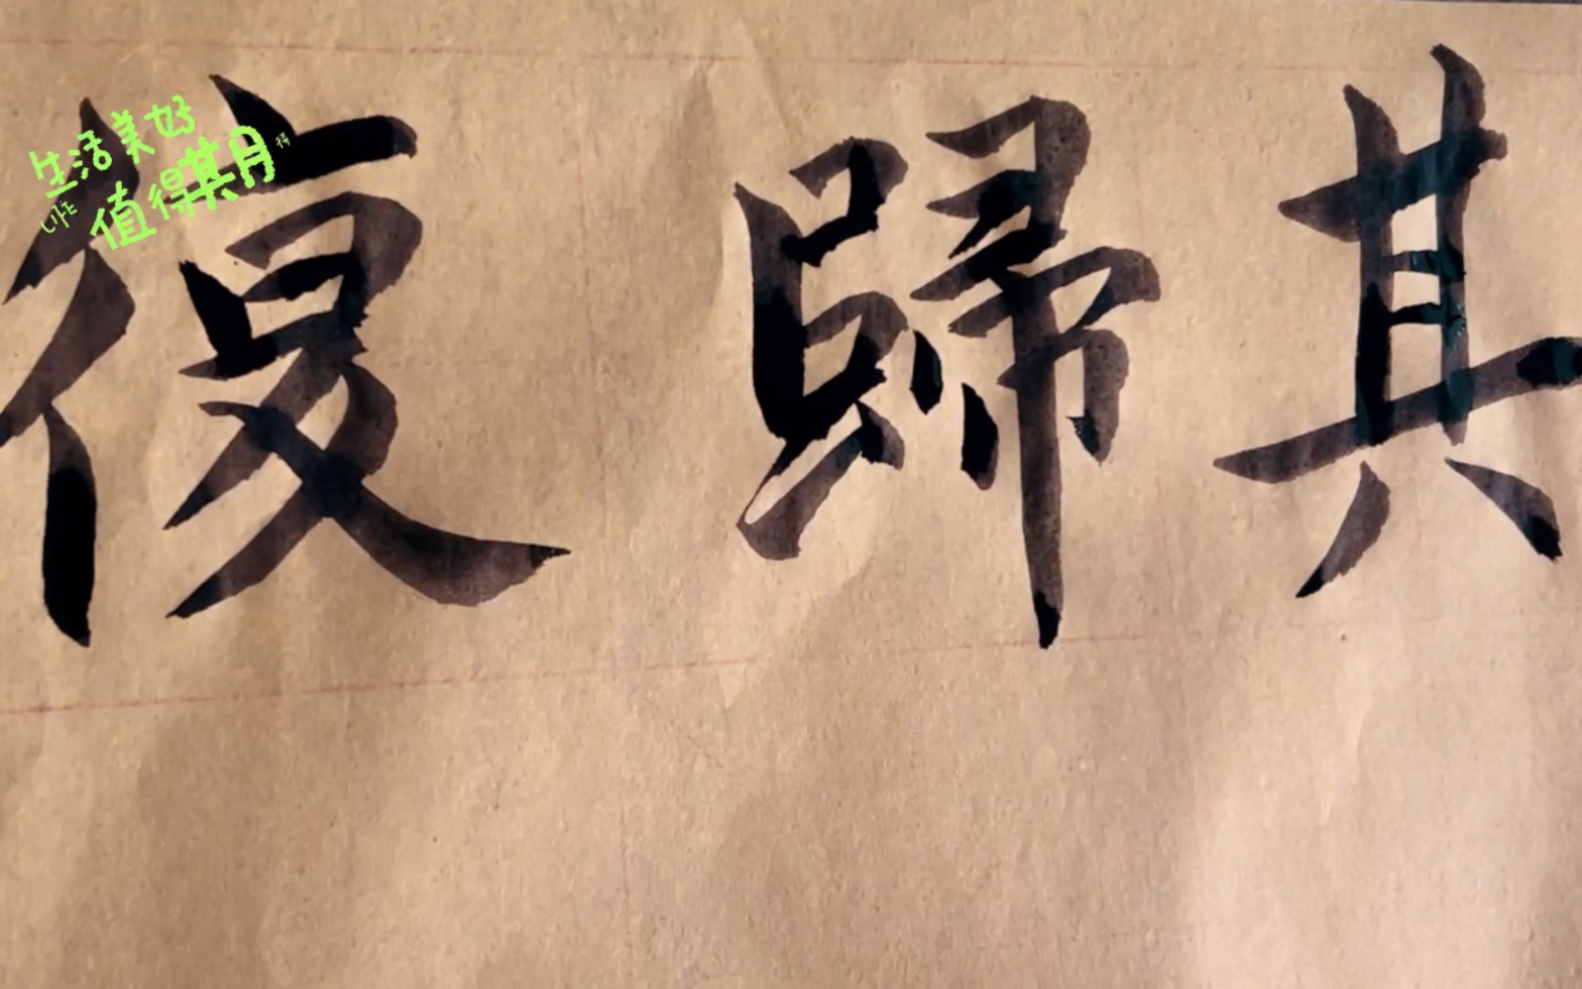 生活美好
值得期
LIFE
復歸其